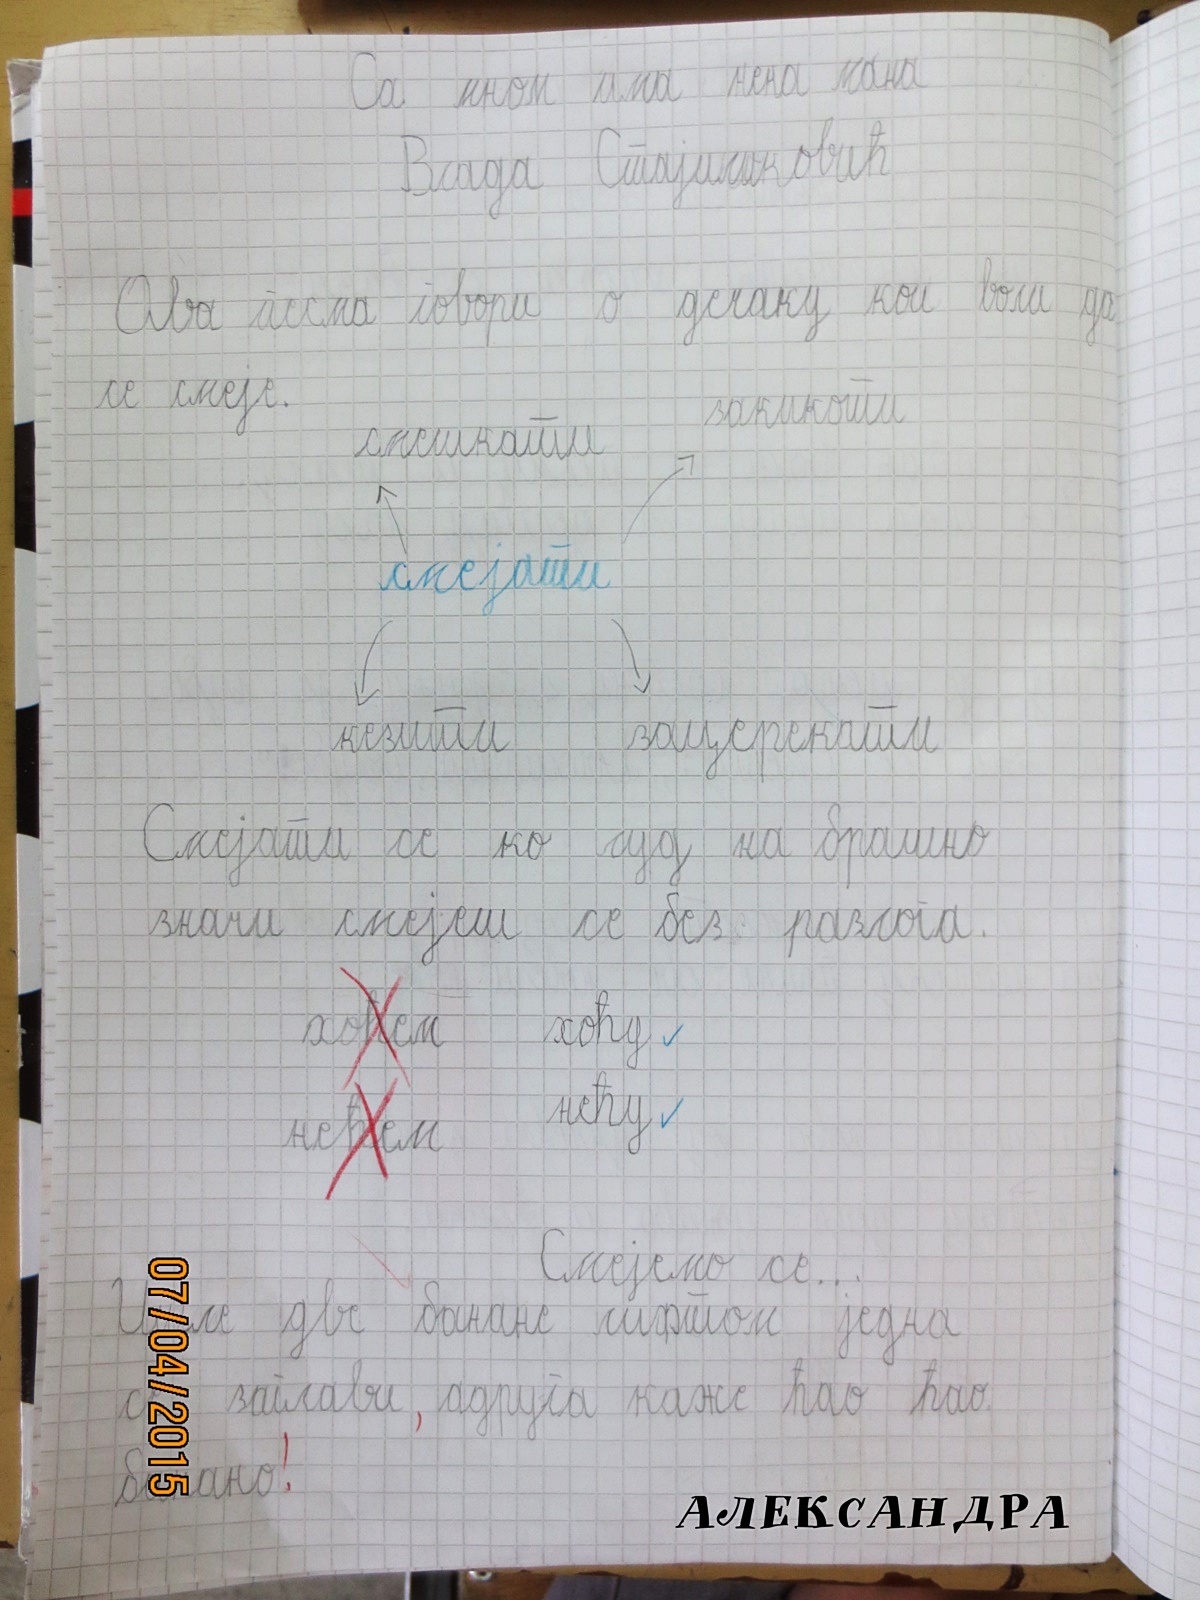 Са мном има нека мана
Влада Стојиљковић
Ова песма говори о дечаку кои воли да
се смеје.
закикоти
смешкати
смејати
кезити зацерекати
Смејати се ко луд на брашно
значи смејеш се без разлога.
хоћем хоћу ✓
нећем нећу ✓
Смејемо се...
Ишле две банане лифтом једна
се заглави, адруга каже ћао ћао
банано!
07/04/2015
АЛЕКСАНДРА